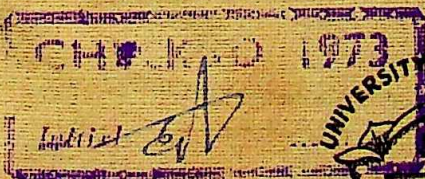 CHECKED 1973
Initial
UNIVERSITY